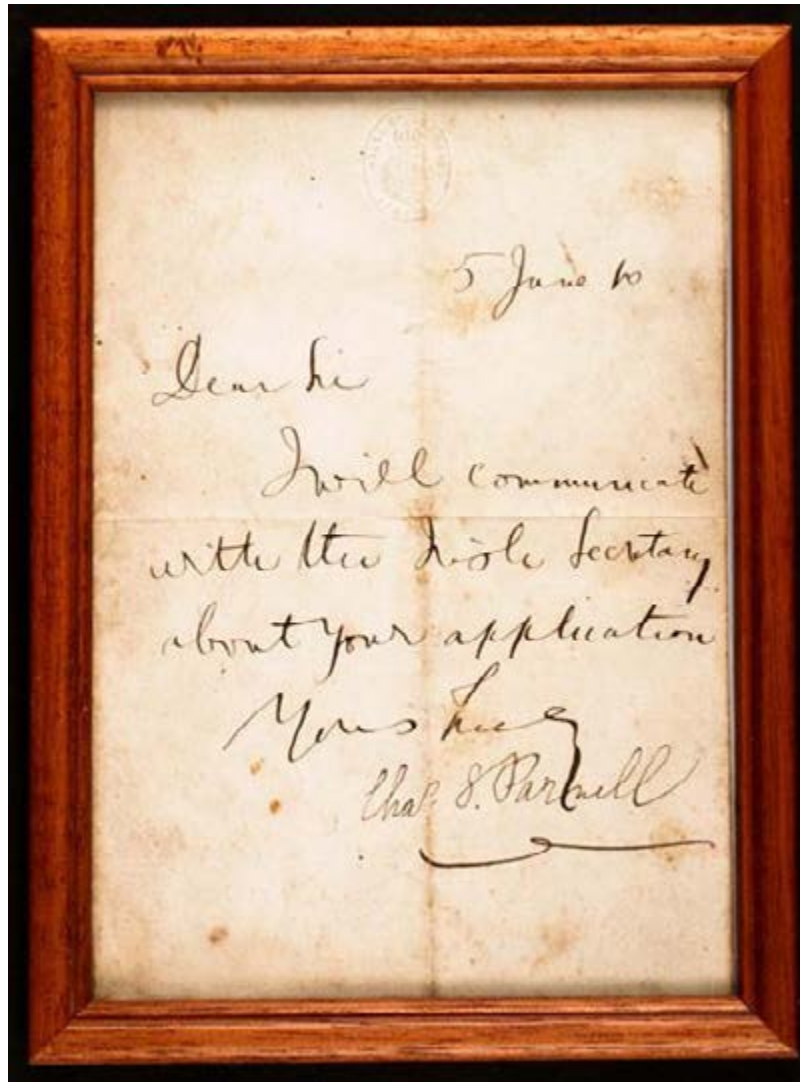 5 June
Dear Sir
I will communicate
with the Irish Secretary
about your application
Yours truly
Chas. S. Parnell